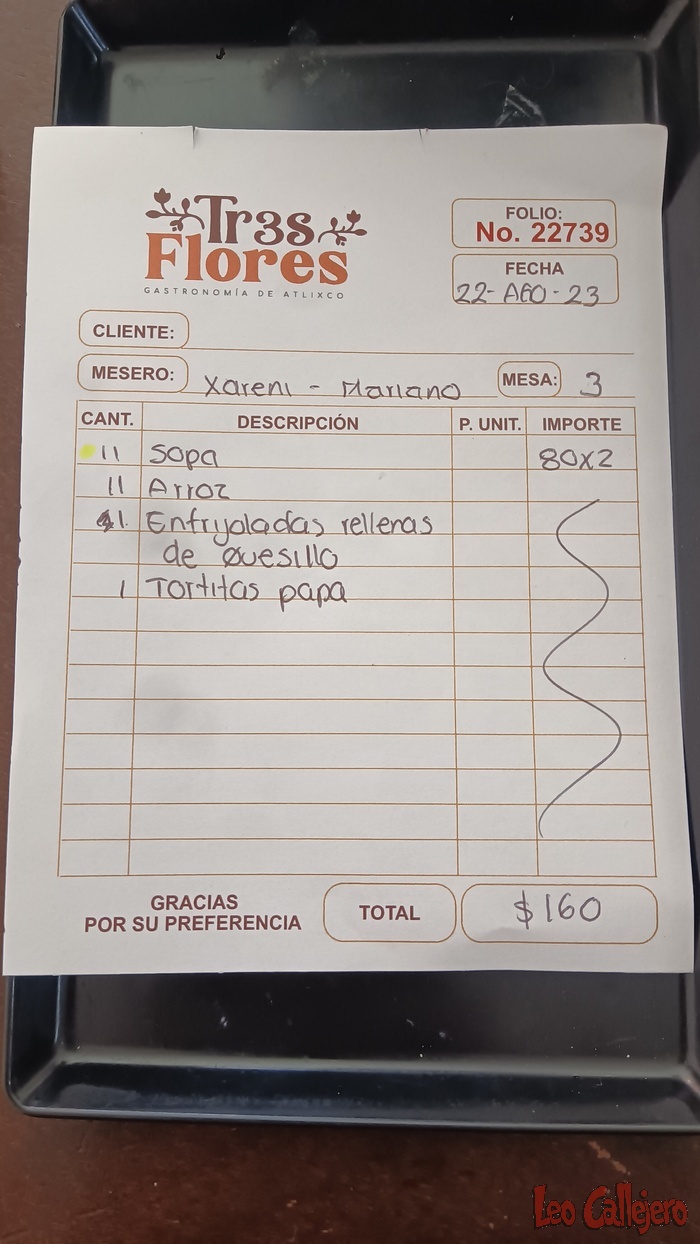 Tr3s
Flores
GASTRONOMÍA DE ATLIXCO
FOLIO:
No. 22739
FECHA
22-AGO-23
CLIENTE:
MESERO: Xareni - Mariano MESA: 3
CANT. DESCRIPCIÓN P. UNIT. IMPORTE
11 Sopa 80x2
11 Arroz
1. Enfryoladas rellenas
de Quesillo
1 Tortitas papa
GRACIAS
POR SU PREFERENCIA
TOTAL $160
Leo Callejero